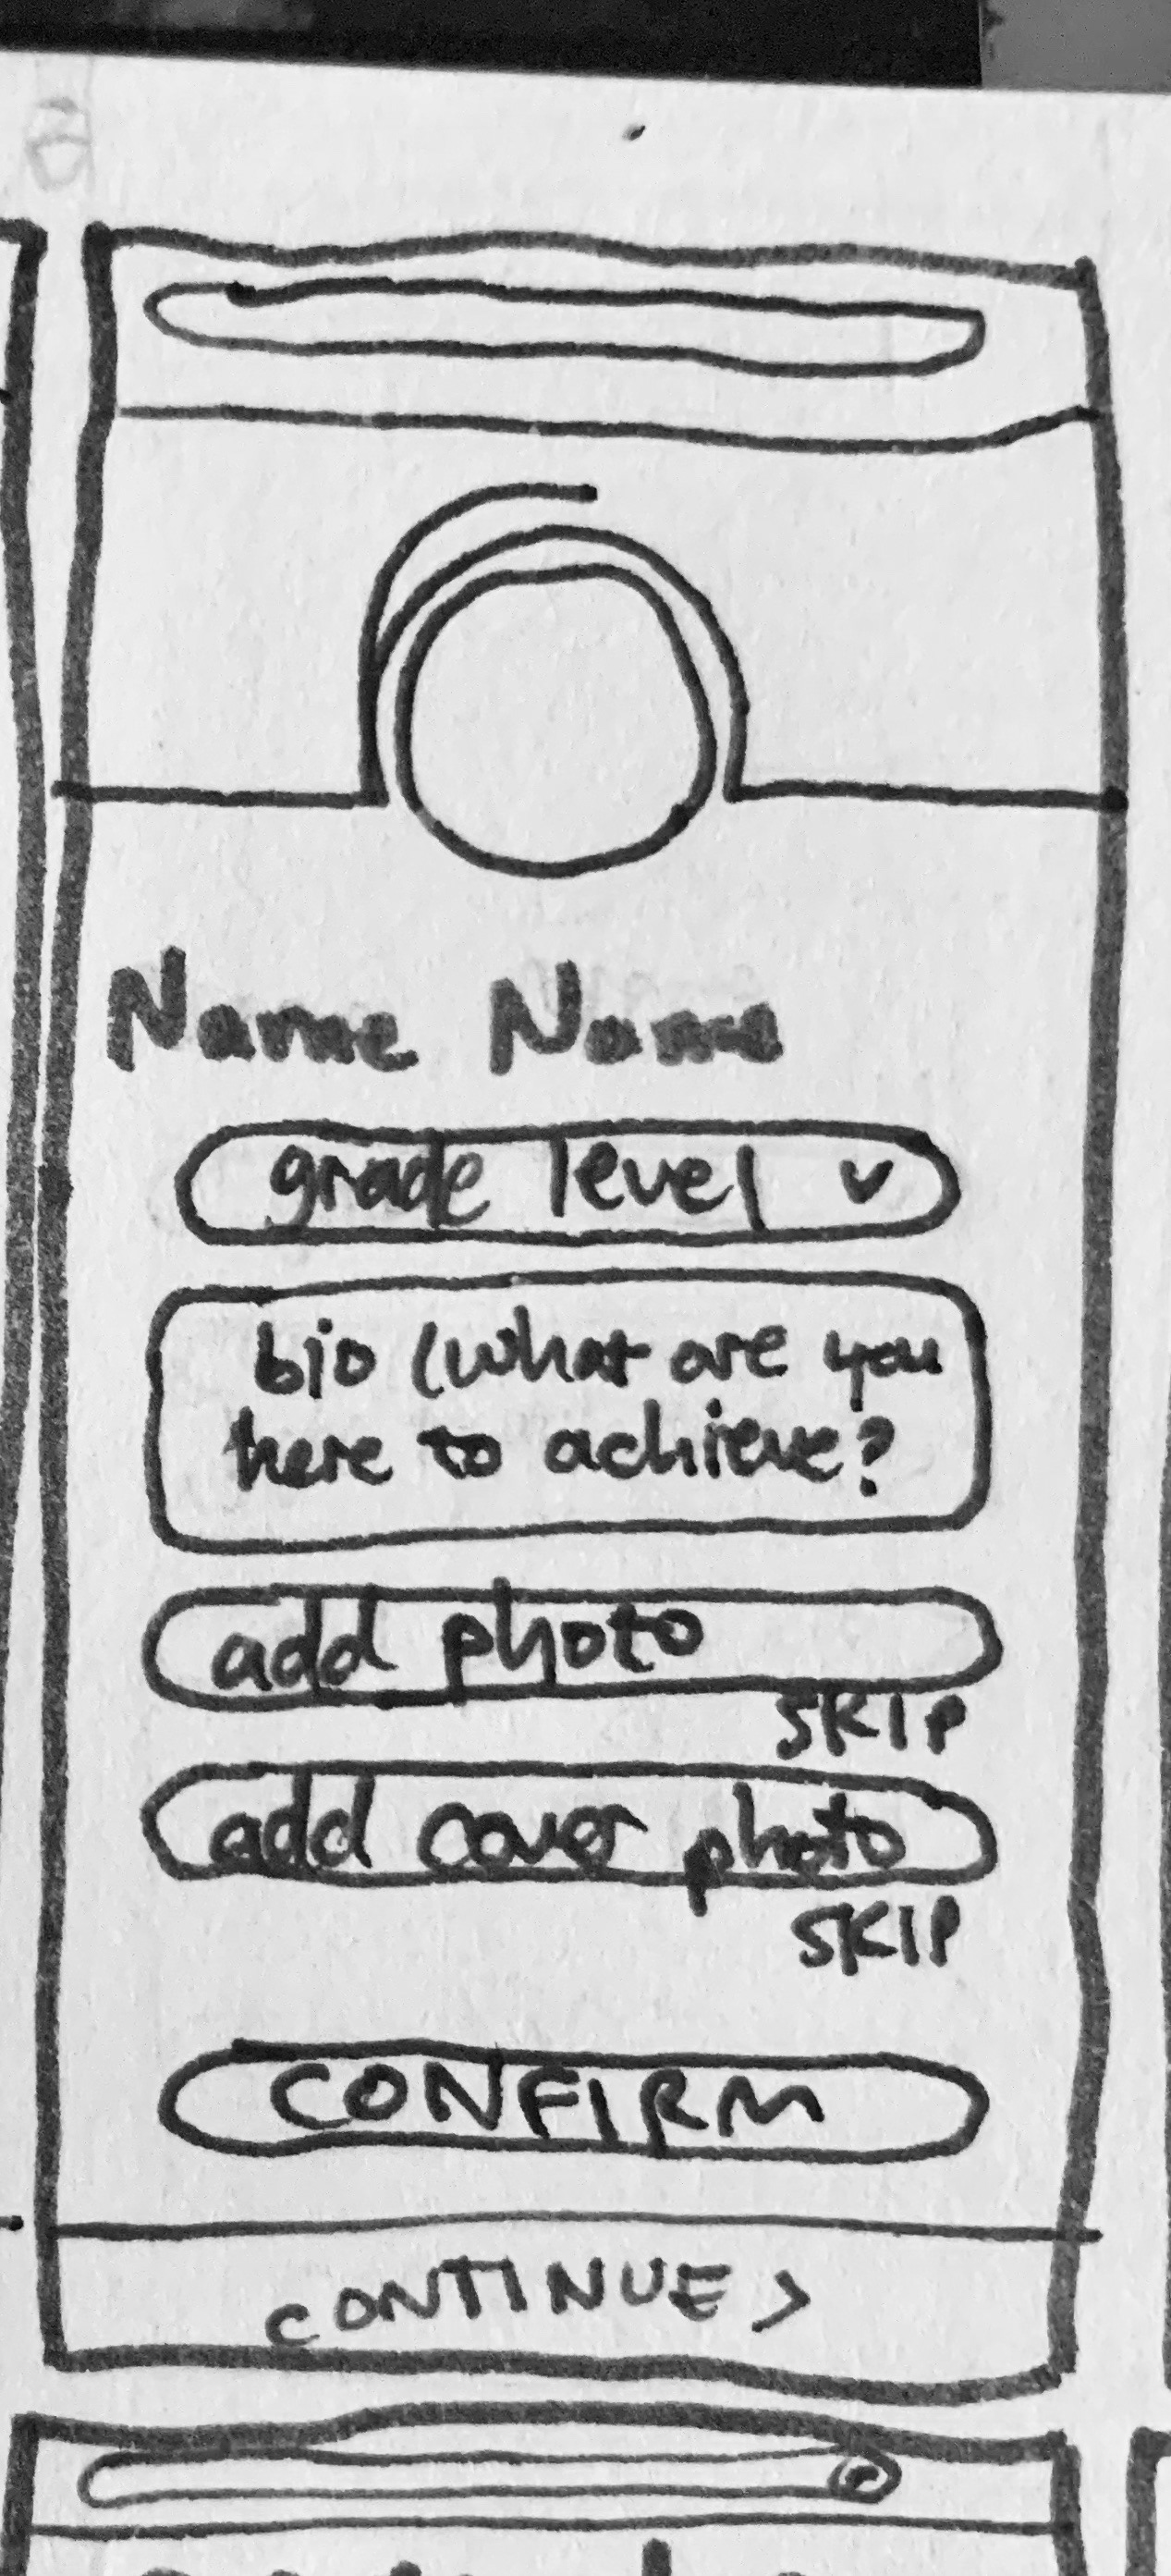 Name Name
grade level v
bio (what are you
here to achieve?
add photo
SKIP
add cover photo
SKIP
CONFIRM
CONTINUE >